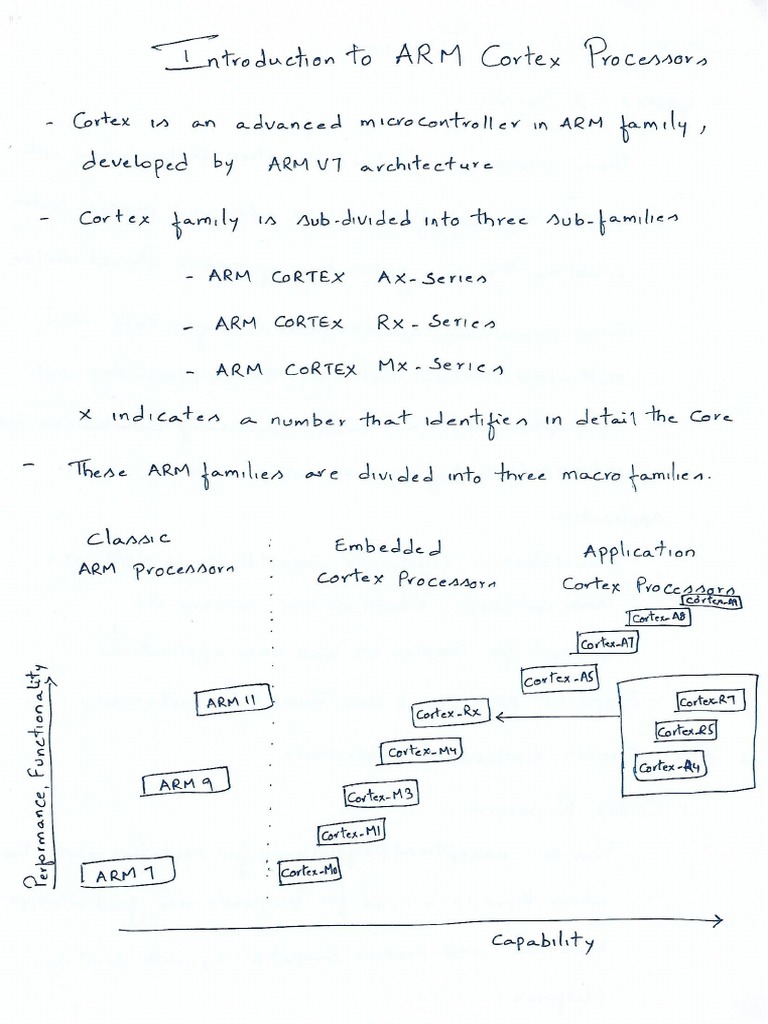 Introduction to ARM Cortex Processors
- Cortex is an advanced microcontroller in ARM family,
developed by ARM V7 architecture
- Cortex family is sub-divided into three sub-families
- ARM CORTEX Ax-Series
- ARM CORTEX Rx-Series
- ARM CORTEX Mx-Series
x indicates a number that identifies in detail the core
- These ARM families are divided into three macro families.
Classic
ARM Processors
Embedded
Cortex Processors
Application
Cortex Processors
Cortex-A9
Cortex-A8
Cortex-A7
Cortex-A5
Cortex-R7
Cortex-R5
Cortex-R4
Cortex-Rx
Cortex-M4
Cortex-M3
Cortex-M1
Cortex-M0
ARM 11
ARM 9
ARM 7
Performance, Functionality
Capability